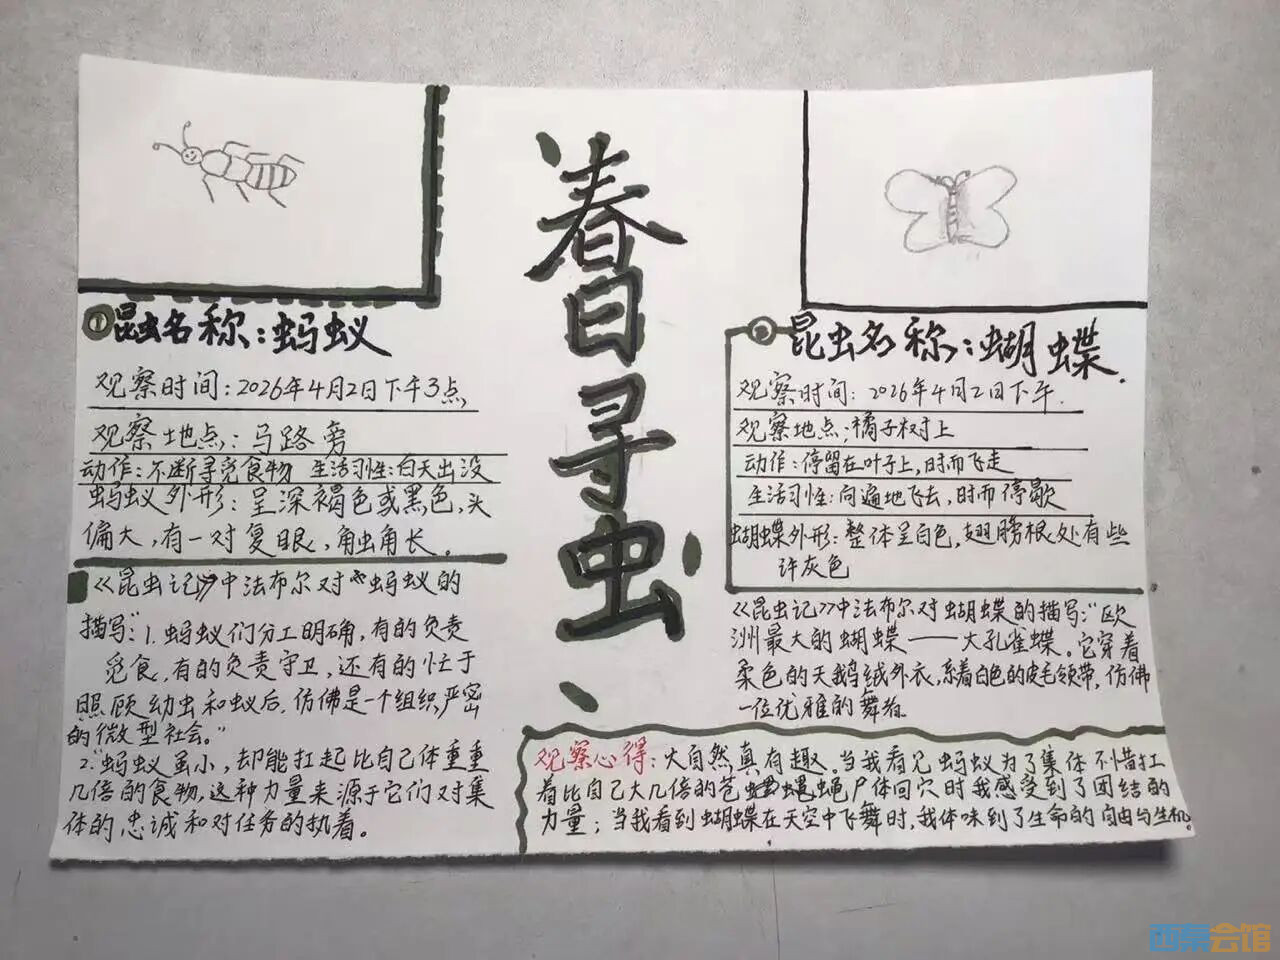 春日寻虫
①昆虫名称:蚂蚁
观察时间:2026年4月2日下午3点
观察地点:马路旁
动作:不断寻觅食物 生活习性:白天出没
蚂蚁外形:呈深褐色或黑色,头
偏大,有一对复眼,触角长。
《昆虫记》中法布尔对蚂蚁的
描写:1.蚂蚁们分工明确,有的负责
觅食,有的负责守卫,还有的忙于
照顾幼虫和蚁后,仿佛是一个组织严密
的微型社会。"
2."蚂蚁虽小,却能扛起比自己体重重
几倍的食物,这种力量来源于它们对集
体的忠诚和对任务的执着。
②昆虫名称:蝴蝶.
观察时间:2026年4月2日下午.
观察地点:橘子树上
动作:停留在叶子上,时而飞走
生活习性:向遍地飞去,时而停歇
蝴蝶外形:整体呈白色,翅膀根处有些
许灰色
《昆虫记》中法布尔对蝴蝶的描写:"欧
洲最大的蝴蝶——大孔雀蝶。它穿着
柔色的天鹅绒外衣,系着白色的皮毛领带,仿佛
一位优雅的舞者.
观察心得:大自然真有趣。当我看见蚂蚁为了集体不惜扛
着比自己大几倍的苍蝇尸体回穴时我感受到了团结的
力量;当我看到蝴蝶在天空中飞舞时,我体味到了生命的自由与生机。
西集会馆